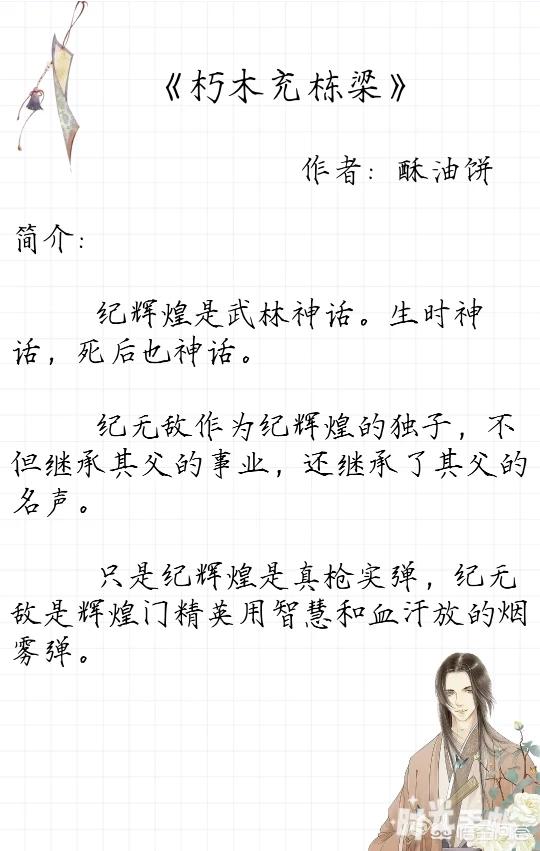 《朽木充栋梁》
作者：酥油饼
简介：
纪辉煌是武林神话。生时神
话，死后也神话。
纪无敌作为纪辉煌的独子，不
但继承其父的事业，还继承了其父的
名声。
只是纪辉煌是真枪实弹，纪无
敌是辉煌门精英用智慧和血汗放的烟
雾弹。